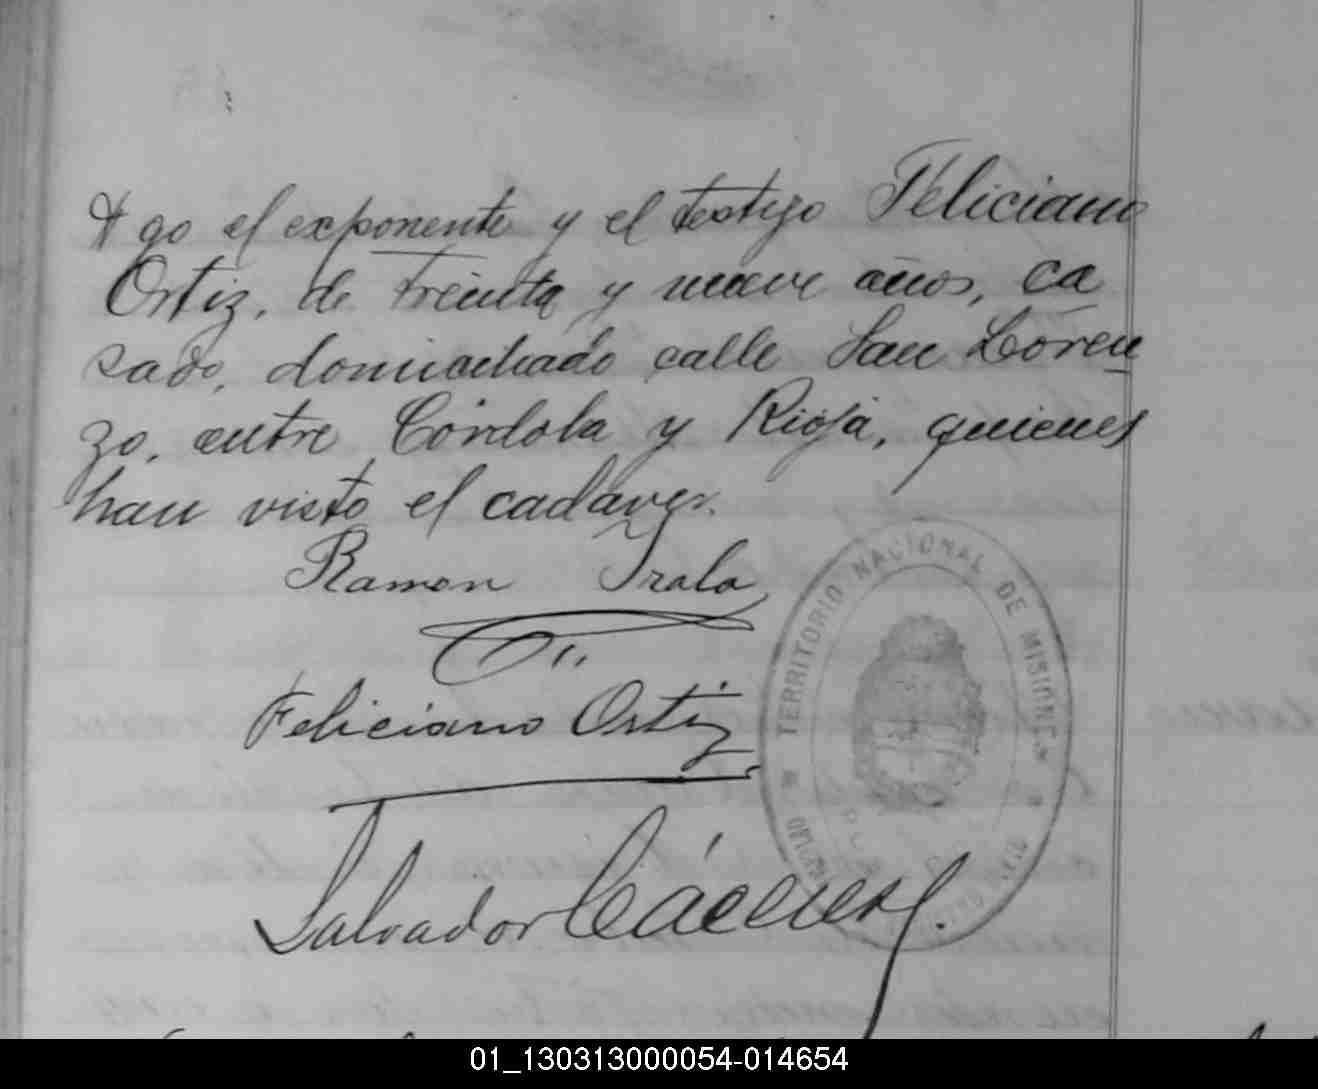 go el exponente y el testigo Feliciano
Ortiz, de treinta y nueve años, ca
sado, domiciliado calle San Loren
zo, entre Córdoba y Rioja, quienes
han visto el cadaver.
Ramon Irala
Feliciano Ortiz
Salvador Cáceres
TERRITORIO NACIONAL DE MISIONES
01_130313000054-014654